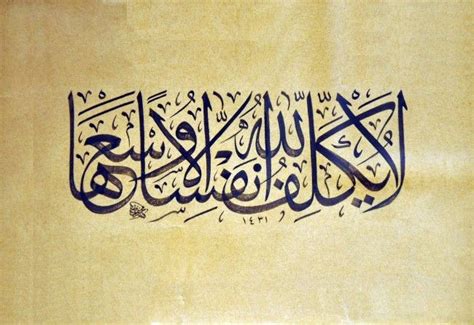 لَا يُكَلِّفُ اللهُ نَفْسًا إِلَّا وُسْعَهَا
١٤٣١